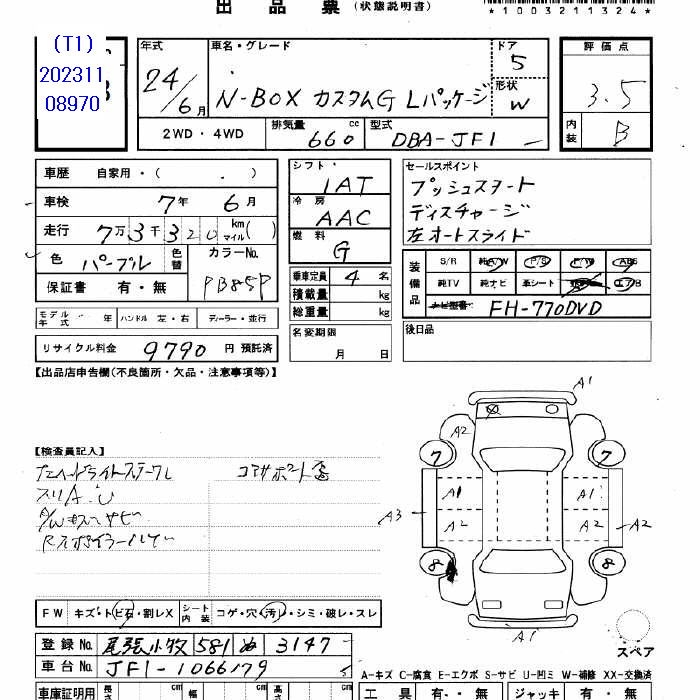 出品票 (状態説明書)
*1003211324*
(T1)
202311
08970
年式 車名・グレード ドア 5 評価点
24/6月 N-BOX カスタムG Lパッケージ 形状 W 3.5
2WD・4WD 排気量 660 cc 型式 DBA-JF1 内装 B
車歴 自家用・( . )
車検 7年 6月
走行 7万3千320 km マイル( )
色 パープル 色替 カラーNo. PB85P
保証書 有・無
シフト IAT
冷房 AAC
燃料 G
乗車定員 4 名
積載量 kg
総重量 kg
セールスポイント
プッシュスタート
ディスチャージ
左オートスライド
装備品 S/R 純A/W P/S P/W ABS
純TV 純ナビ 革シート エアB
ナビ型番 FH-770DVD
モデル年式 年 ハンドル 左・右 ディーラー・並行
リサイクル料金 9790 円 預託済
名変期限 月 日
後日品
【出品店申告欄(不良箇所・欠品・注意事項等)】
【検査員記入】
コアサポート
スリA.U
A/W サビ
Rスポイラー
A1
A2
7 7
A1 A1
A3 A2 A2 A2
8 8
A1
スペア
FW キズ・トビ石・割レX シート内装 コゲ・穴・汚レ・シミ・破レ・スレ
登録No. 尾張小牧 581 ぬ 3147
車台No. JF1-1066179 5
A-キズ C-腐食 E-エクボ S-サビ U-凹ミ W-補修 XX-交換済
車庫証明用 長さ cm 幅 cm 高さ cm 工具 有・無 ジャッキ 有・無